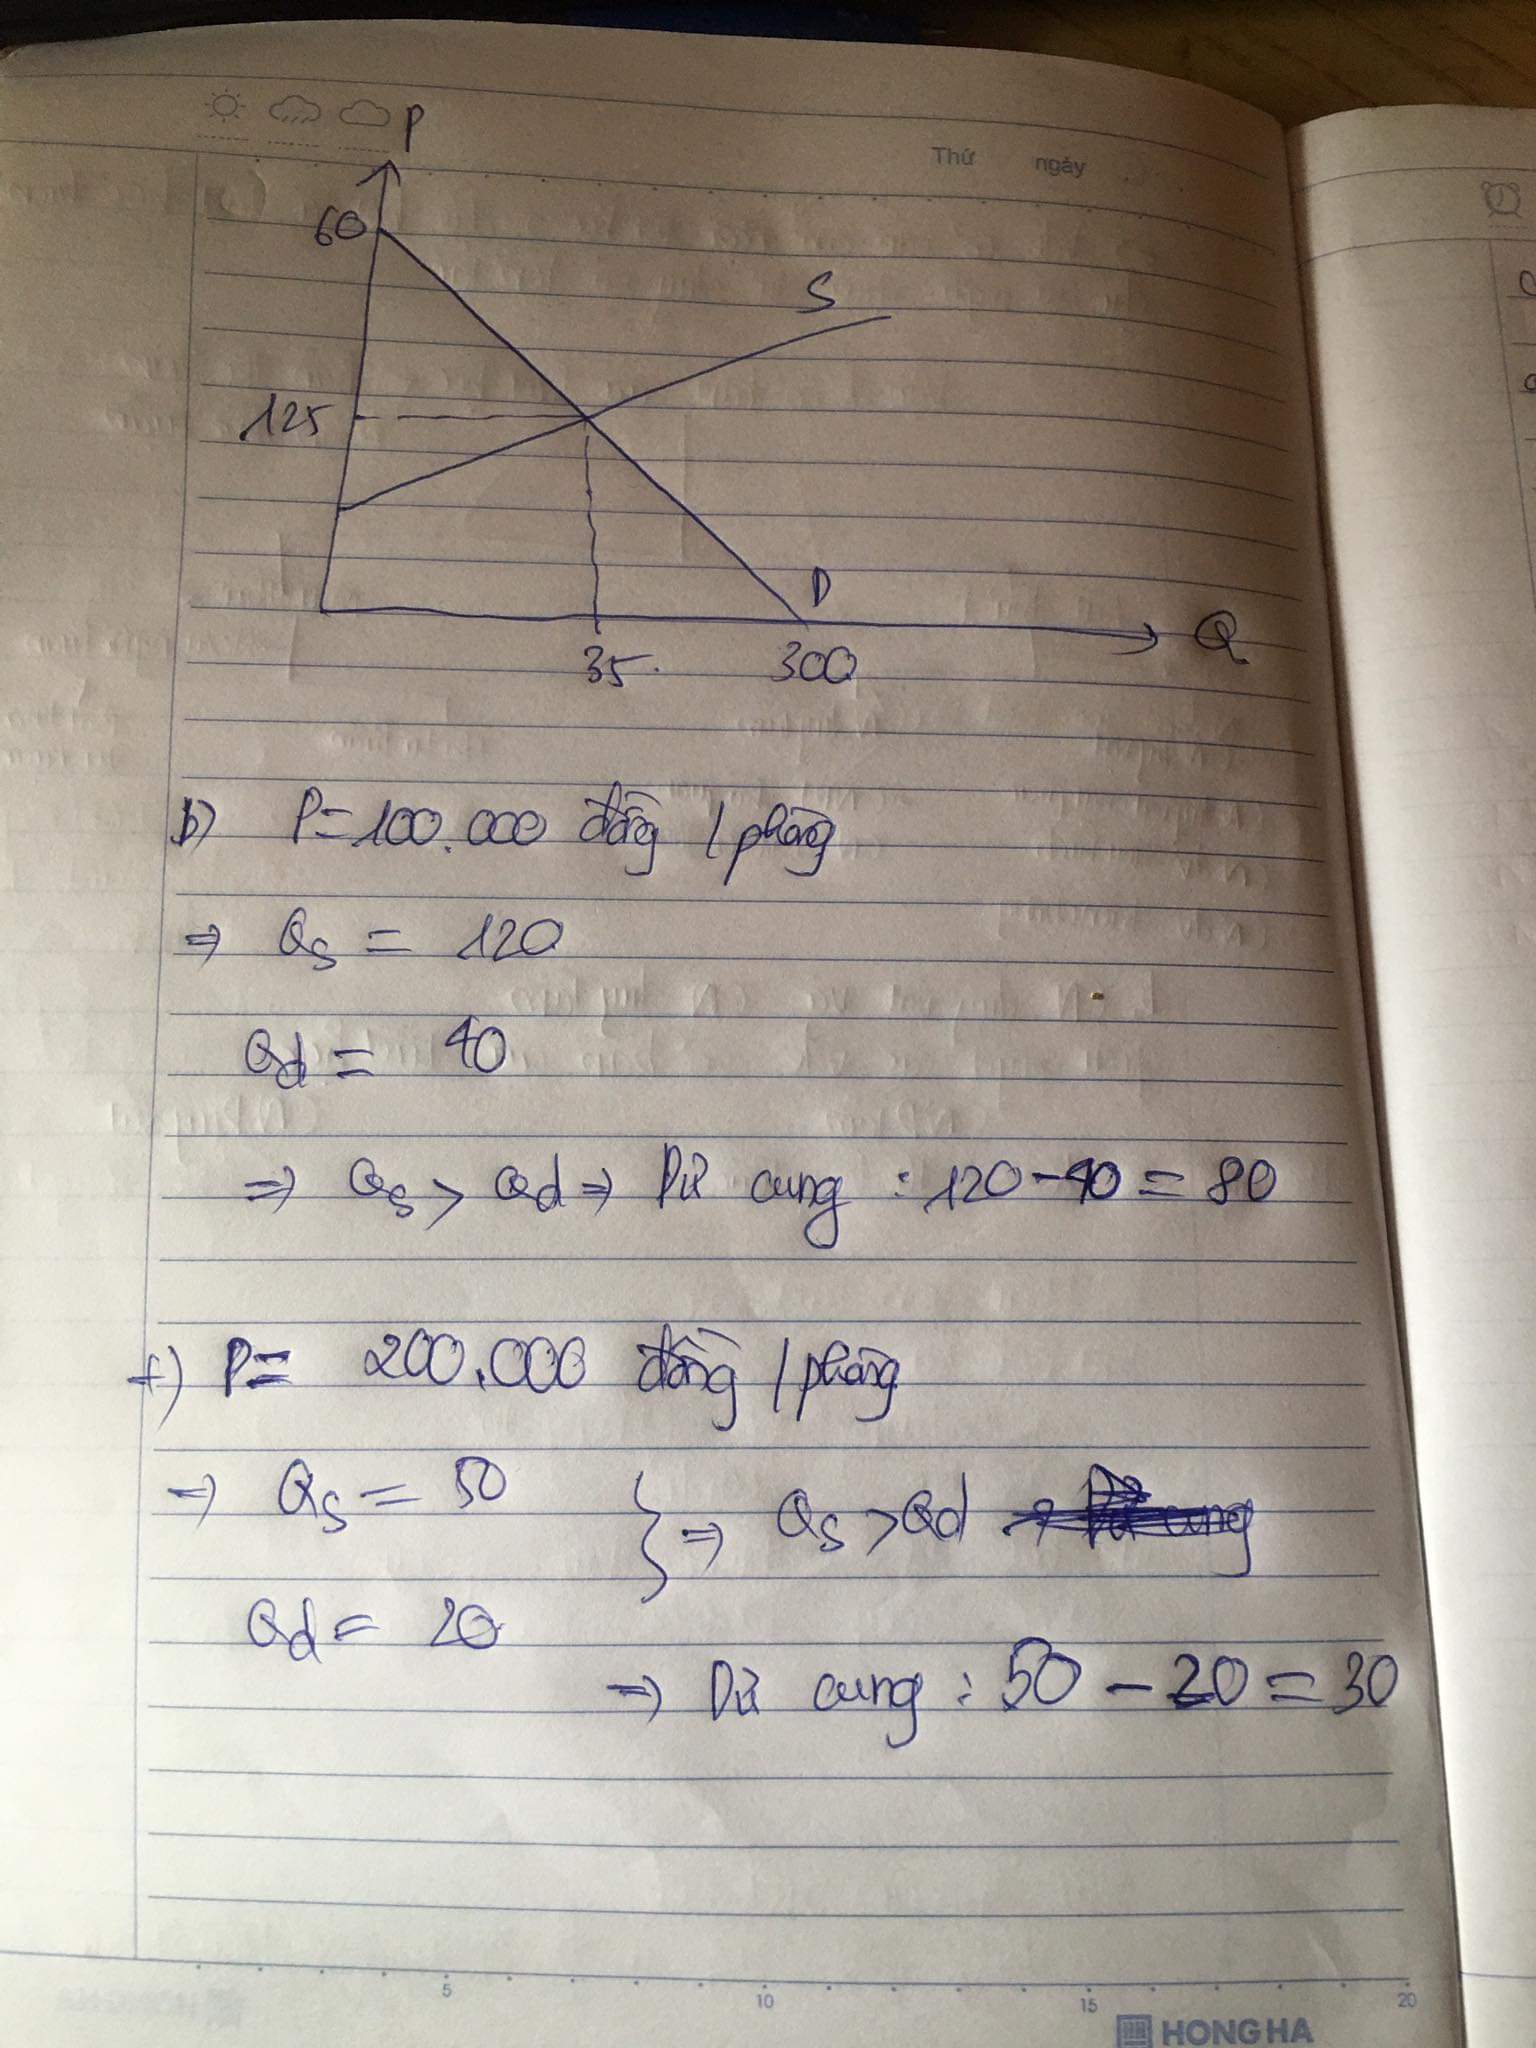 P
Thứ ngày
60
S
125
D
Q
35
300
b) P = 100.000 đồng / phòng
⇒ Qs = 120
Qd = 40
⇒ Qs > Qd ⇒ Dư cung : 120 - 40 = 80
+) P = 200.000 đồng / phòng
⇒ Qs = 50
} ⇒ Qs > Qd
Qd = 20
⇒ Dư cung : 50 - 20 = 30
5 10 15 20
HONG HA